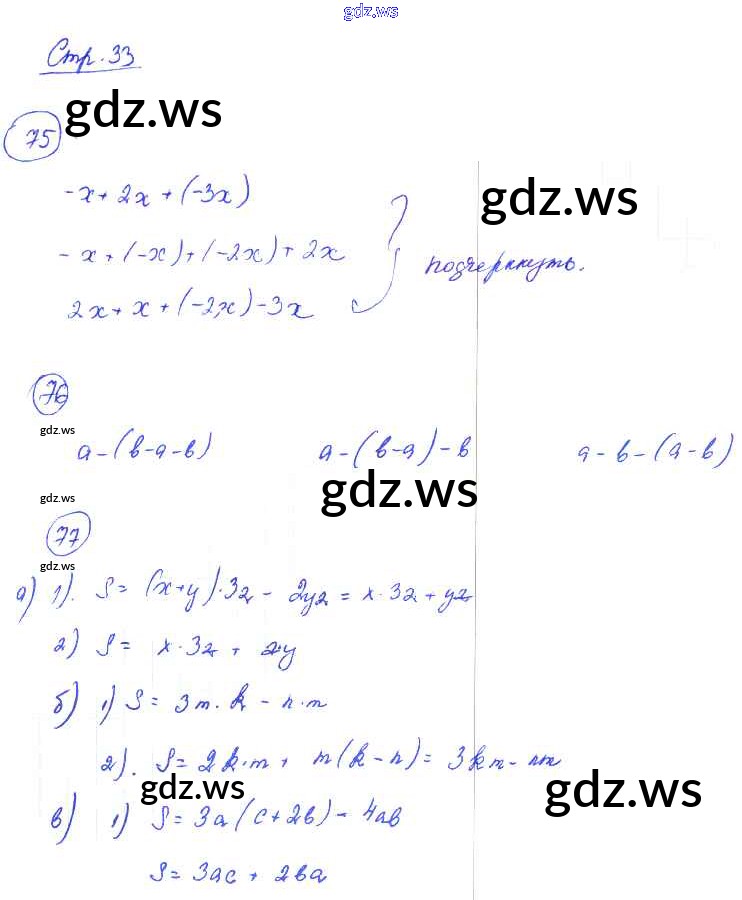 gdz.ws
Стр. 33
gdz.ws
75
-x + 2x + (-3x)
gdz.ws
-x + (-x) + (-2x) + 2x
подчеркнуть.
2x + x + (-2x) - 3x
76
gdz.ws
a - (b - a - b) a - (b - a) - b a - b - (a - b)
gdz.ws
gdz.ws
77
gdz.ws
а) 1). S = (x+y)·3z - 2yz = x·3z + yz
2) S = x·3z + zy
б) 1) S = 3m·k - n·m
2). S = 2k·m + m(k - n) = 3km - nm
gdz.ws
gdz.ws
в) 1) S = 3a(c + 2b) - 4ab
S = 3ac + 2ba